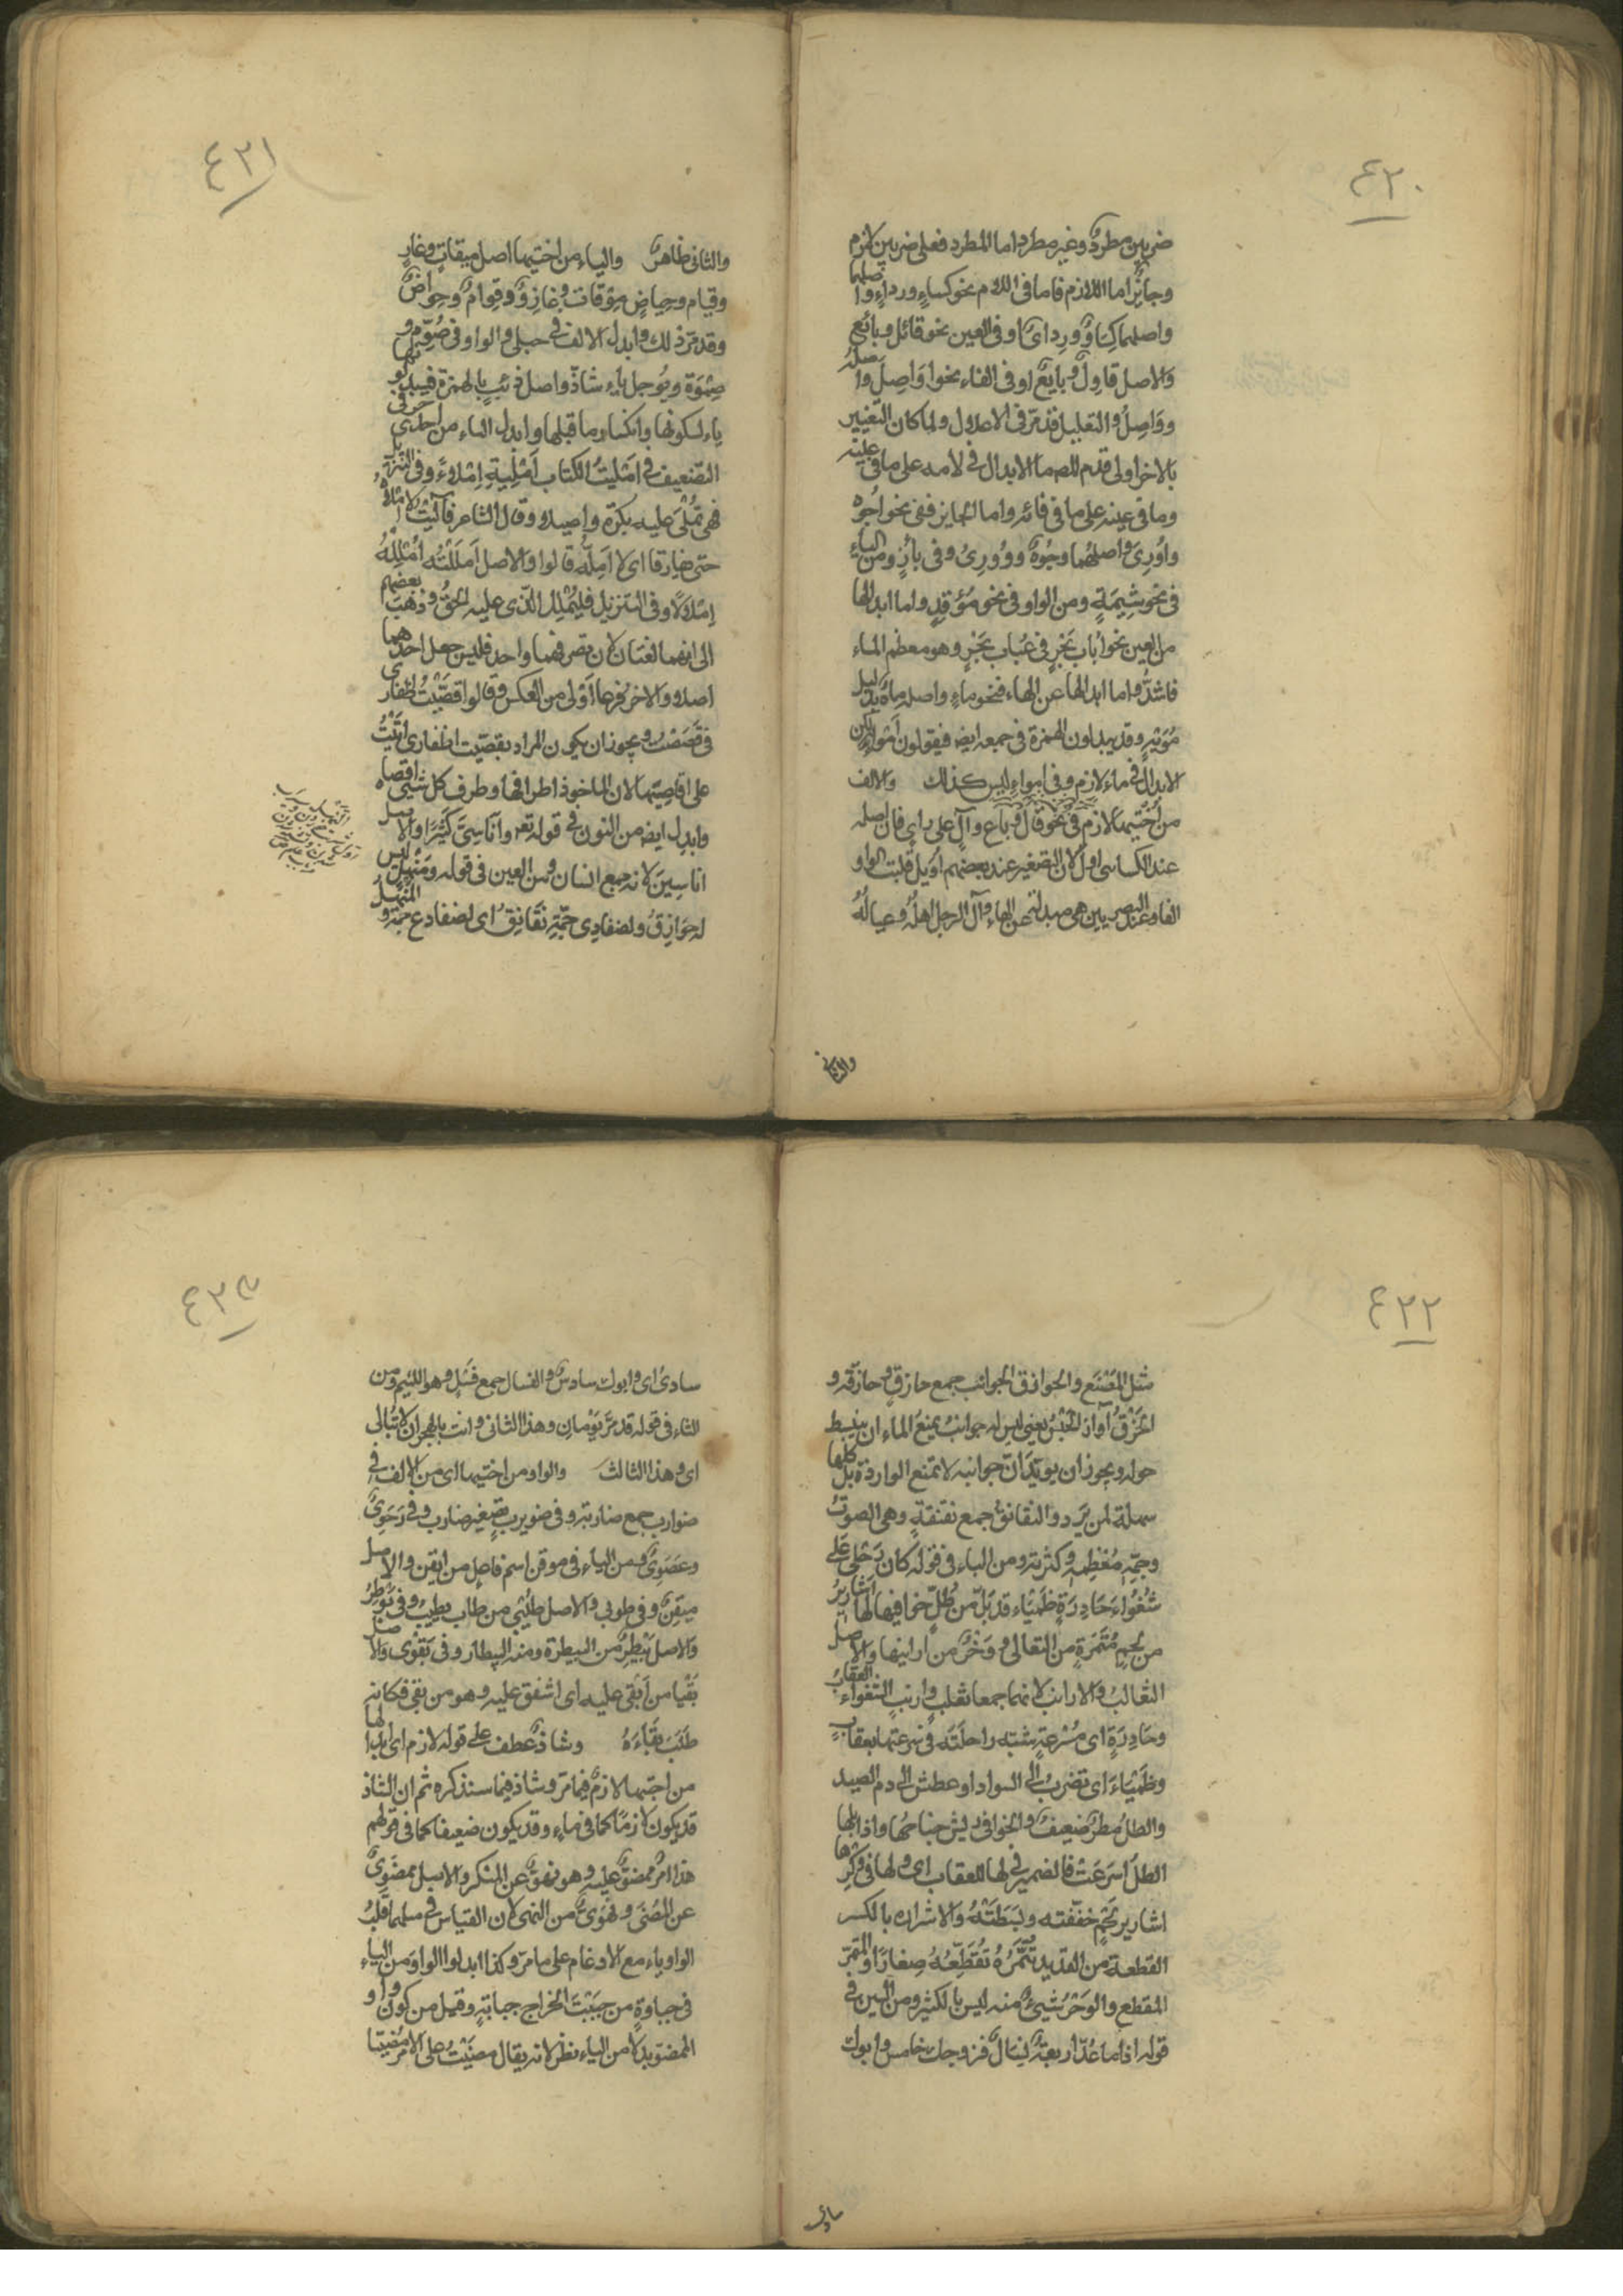 ٤٢٠
ضربين مطردٌ وغير مطرد اما المطرد فعلى ضربين لازم
وجايز اما اللازم فاما فى اللام نحو كساءٍ ورداءٍ واصلهما
واصلهما كِساوٌ ورِدایٌ او فى العين نحو قائل وبائع
والاصل قاوِلٌ وبايعٌ او فى الفاء نحو اَواصِلَ واصله
ووَاصِلُ والتعليل قد مرّ فى الاعلال ولما كان التغيير
بالاخر اولى قدم المص ما الابدال فى لامه على ما فى عينه
وما فى عينه على ما فى فائه واما الجايز ففى نحو اُجُوه
واُورِىَ واصلهما وجُوهٌ ووُورِىَ وفى بأزٍ ومن الياء
فى نحو شِيمَةٍ ومن الواو فى نحو مُؤقدٍ واما ابدالها
من العين نحو اُباب بَحْرٍ فى عُباب بَحْرٍ وهو معظم الماء
فاشذُّ واما ابدالها عن الهاء فنحو ماءٍ واصله ماهٌ بدليل
مُوَيْهٍ وقد يبدلون الهمزة فى جمعه ايضا فيقولون اَمْواءٍ لكن
الابدال فى ماء لازم وفى امواءٍ ليس كذلك والالف
من اُخْتيها لازم فى نحو قال وباع وآلٍ على راىٍ فان اصله
عند الكسائى اولٌ لان التصغير عند بعضهم اُوَيل قلبت الواو
الفا وعند البصريين هى مبدلة عن الهاء وآل الرجل اهلُه وعيالُهُ
والثانى
٤٢١
والثانى ظاهرٌ والياء من اختيها اصل ميقاتٍ وغازٍ
وقيام وحِياضٍ مِوْقات وغازِوٌ وقِوامٌ وحِواضٌ
وقد مرّ ذلك وابدل الالف فى حبلى والواو فى صُوَّم و
صِبْوَة ويُوجل ياء شاذّ واصل ذئب بالهمزة فيبدلونها
ياء لسكونها وانكسار ما قبلها وابدل الياء من احد حرفى
التضعيف فى امْليتُ الكتاب اُمْلِيهِ اِملاءً وفى التنزيل
فهى تُمْلى عليه بكرة واصيلا وقال الشاعر فآليت لا امْلاهُ
حتى يفارقا اى لا اَمِلّه قالوا والاصل اَمْلَلْتُه اُمْلِلُهُ
اِمْلالًا وفى التنزيل فليُمْلِل الّذى عليه الحقّ وذَهَبَ بعضهم
الى انهما لغتان لان تصرفهما واحد فليس جعل احدهما
اصلا والاخر فرعا اَوْلى من العكس وقالوا قصَّيْتُ اظفارى
فى قَصَصْت ويجوز ان يكون المراد بقصّيت اظفارى اتَيْتُ
على اقاصِيَها لان الماخوذ اطرافها وطرف كل شىء اقصاه
وابدل ايضا من النون فى قوله تعـ واَناسِىَّ كَثِيرًا والاصل
اناسِينَ لانه جمع انسان ومن العين فى قوله ومَنْهَلٍ ليس
له حَوازِقُ ولضفادِى جَمِّهِ نَقانِقُ اى لضفادع جَمِّهِ و المَنْهَلُ
٤٢٢
مثل المَصْنَع والحوازق الجوانب جمع حازقٍ وحازقةٍ و
الحَزْقُ آواز الحَبْسُ يعنى ليس له جوانبُ يمنعُ الماء ان ينبسط
حوله ويجوز ان يريد اَنّ جوانبه لا تمنع الواردة بل كلها
سهلة لمن يَرِد والنقانق جمع نقنقةٍ وهى الصوتُ
وجمّهِ مُعْظَمِهِ وكثرته ومن الباء فى قوله كان رَحْلى على
شَغْواءَ حَادِرَةٍ ظَمْيَاء قد بَلّ من طَلٍّ خوافيها لها اَشارِيرُ
من لحم مُتَمَّرَةٍ من الثعالى ووَخْزٌ من ارانيها والاصل
الثعالبُ والارانبُ لانهما جمعا ثعلبٍ وارنبٍ الشغواء العقابُ
وحَادِرَةٍ اى مُسْرِعَةٍ شبّه راحلَتَه فى سُرعتها بعقابٍ
وظَمْيَاءَ اى تضربُ الى السواد او عطش الى دم الصيد
والطلّ مطرٌ ضعيفٌ والخوافى ريش جناحها واذا بلها
الطلّ اسرَعَتْ فالضمير فى لها للعقاب اى ولها فى وَكْرِها
اشارير لَحْمٍ خففته ولبَطَتْهُ والاشراره بالكسر
القطعة من القديد تُتَمِّرُهُ تُقَطِّعُهُ صِغارًا والمتمّر
المقطع والوَخْزُ شيئٌ منه ليس بالكثير ومن السين فى
قوله اذا ما عُدَّ اربعةٌ فِسالٌ فزوجكِ خامس وابوك
سادى
٤٢٣
سادى اى وابوك سادسٌ والفسال جمع فَسْلٍ وهو اللئيم ومن
الثاء فى قوله قد مرّ يَوْمانِ وهذا الثانى وانت بالهجران لا تُبالى
اى وهذا الثالث والواو من اختيها اى من الالف فى
ضوارب جمع ضاربة وفى ضويرب تصغير ضارب وفى رَحَوِىٍّ
وعَصَوِىٍّ ومن الياء فى موقن اسم فاعل من ايقن والاصل
ميقِنٌ وفى طوبى والاصل طُيْبى من طابَ يطيبُ وفى بُوطِرَ
والاصل بُيْطِرَ من البيطرة ومنه البيطار وفى بَقْوى والاصل
بَقْيا من اَبْقى عليه اى اشفق عليه وهو من بقى فكانه
طلَبَ بَقاءَهُ وشاذٌ عطف على قوله لازم اى ابدالها
من اختها لازمٌ فيما مرّ وشاذ فيما سنذكره ثم ان الشاذ
قد يكون لازمًا كما فى ماءٍ وقد يكون ضعيفا كما فى قولهم
هذا امرٌ ممضوٌّ عليه وهو نهوٌّ عن المنكر والاصل ممضوىٌ
عن المُضىّ ونَهُوىٌ من النهى لان القياس فى مثلهما قلبُ
الواو ياء مع الادغام على ما مرّ وكذا ابدلوا الواوَ من الياء
فى جباوةٍ من جَبَيْتَ الخراج جبايةٍ وقيل من كون واو
الممضو بدلا من الياء نظر لانه يقال مضَيْتُ على الامر مُضِيّا